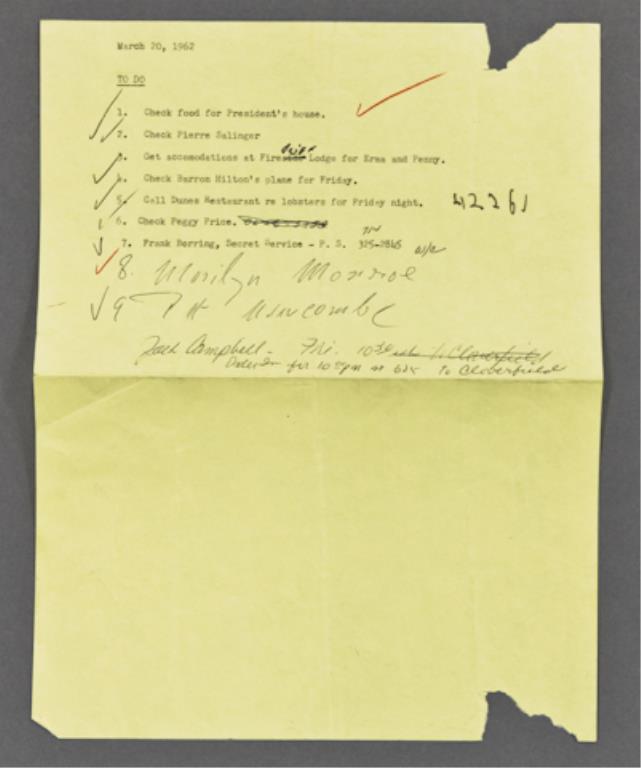 March 20, 1962
TO DO
1. Check food for President's house.
2. Check Pierre Salinger
3. Get accomodations at Fire Lodge for Erma and Penny.
4. Check Barron Hilton's plane for Friday.
5. Call Dunes Restaurant re lobsters for Friday night. 42261
6. Check Peggy Price.
7. Frank Borring, Secret Service - P. S. 325-2845
8. Marilyn Monroe
9 Pat Newcombe
Jack Campbell - Fri.
for 10 at 625 to Cloverfield